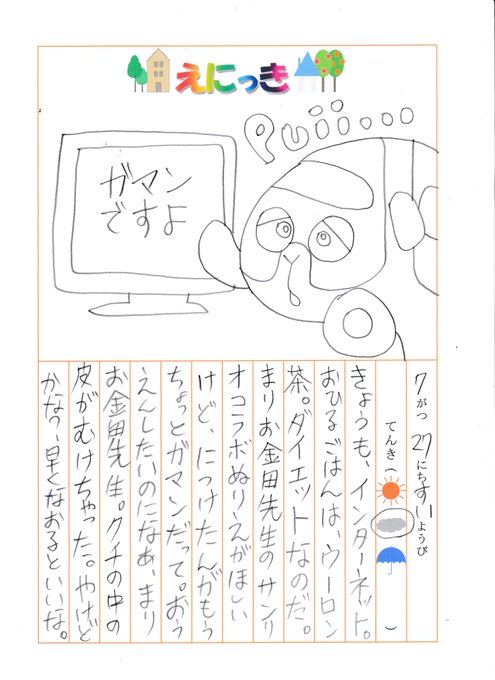 えにっき
Puii...
ガマン
ですよ
7がつ 27にち すいようび
てんき( )
きょうも、インターネット。
おひるごはんは、ウーロン
茶。ダイエットなのだ。
まりお金田先生のサンリ
オコラボぬりえがほしい
けど、につけたんがもう
ちょっとガマンだって。おう
えんしたいのになあ、まり
お金田先生。クチの中の
皮がむけちゃった。やけど
かなっ、早くなおるといいな。